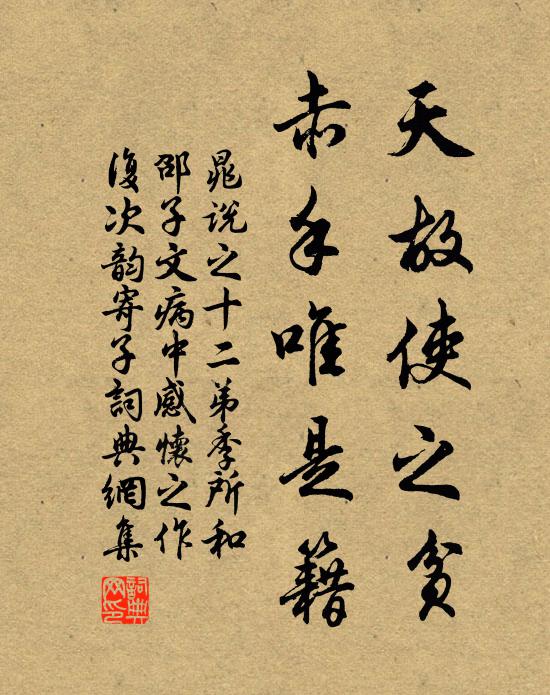 天故使之貧
赤手唯是籍
晁說之十二弟季所和
邵子文病中感懷之作
復次韵寄子詞典網集
詞典網印